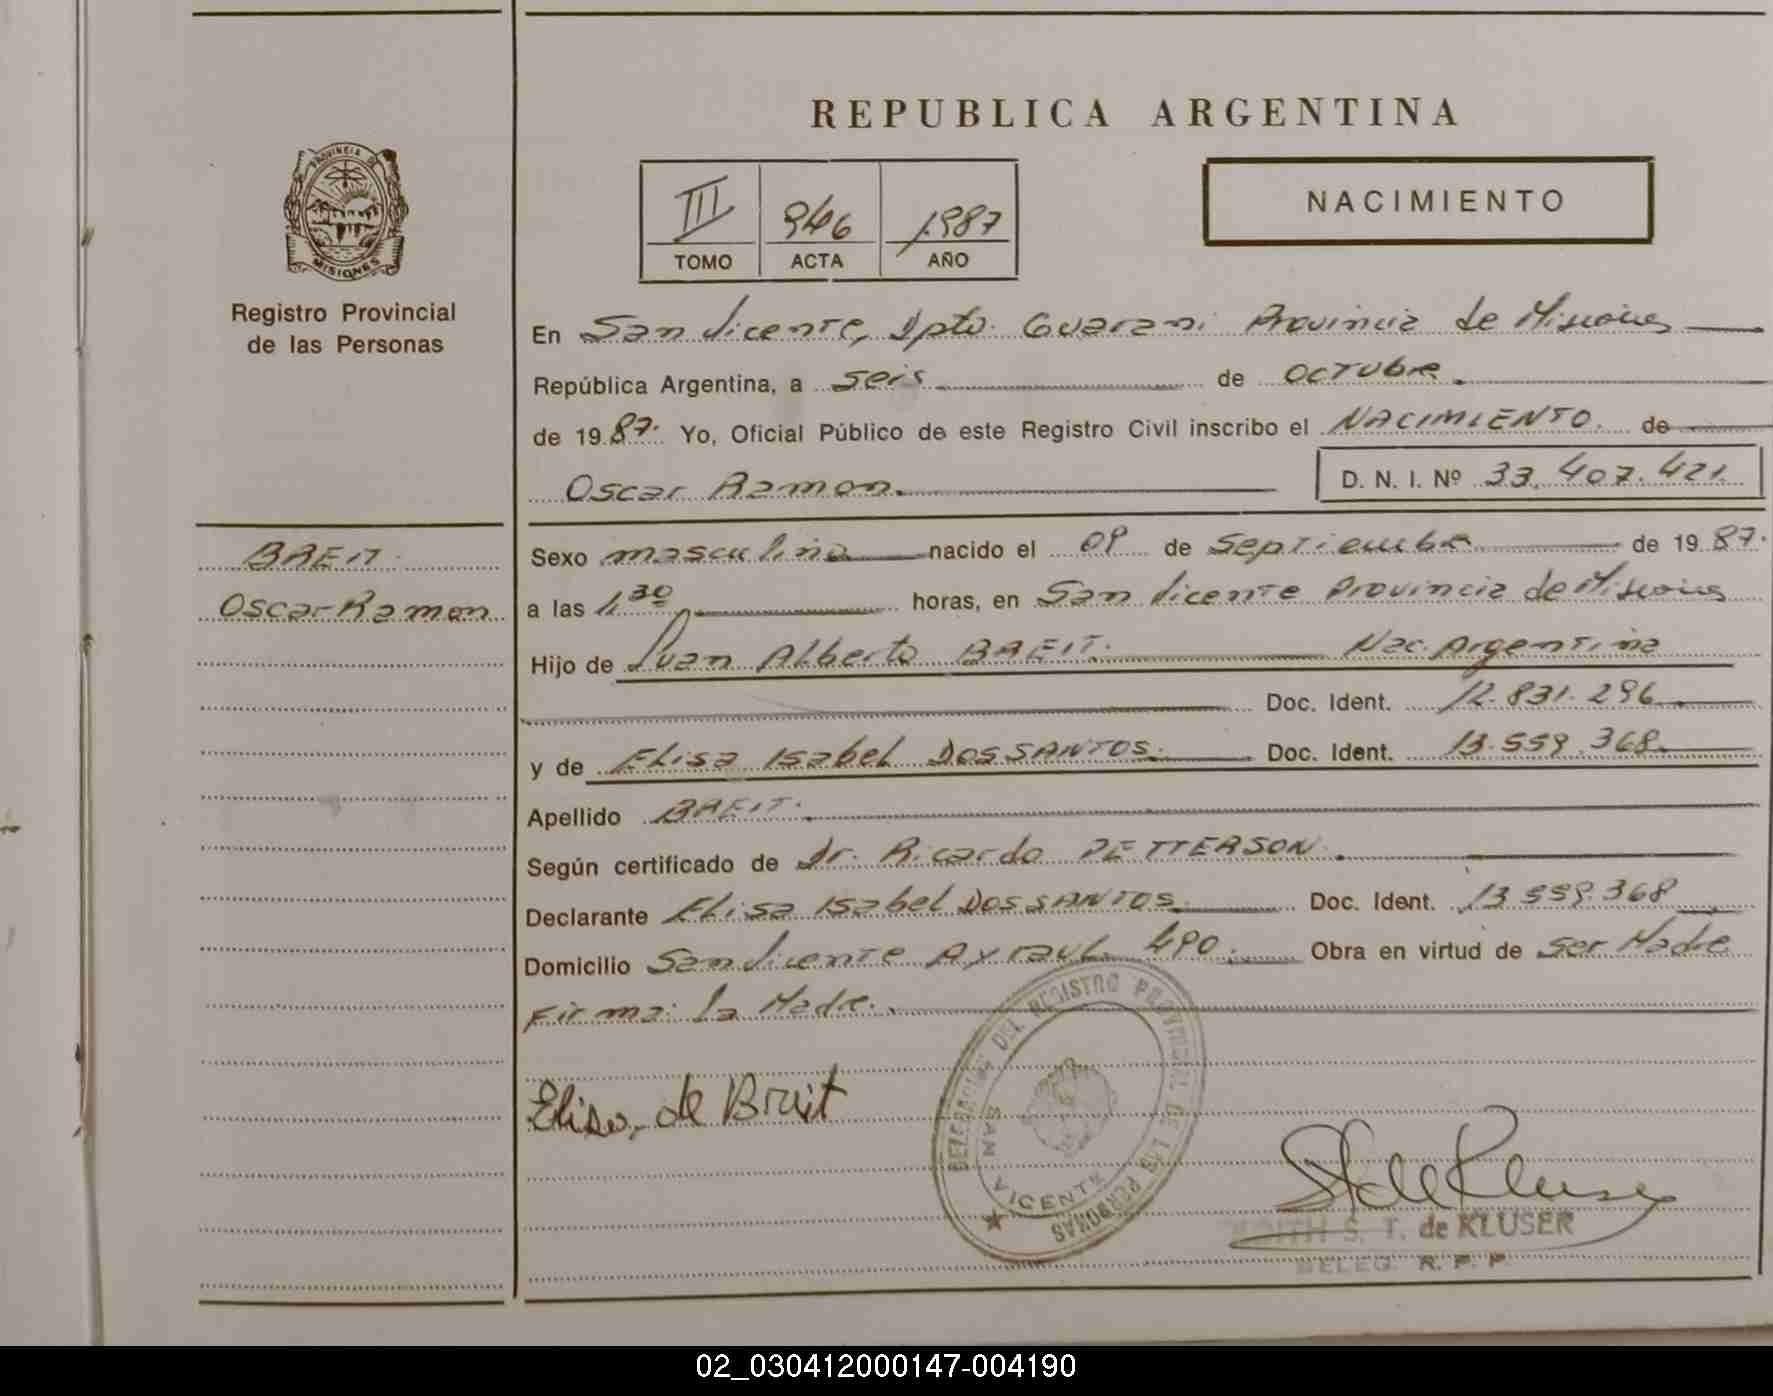 REPUBLICA ARGENTINA
PROVINCIA DE
MISIONES
Registro Provincial
de las Personas
III 946 1987
TOMO ACTA AÑO
NACIMIENTO
En San Vicente, Dpto. Guarani Provincia de Misiones
República Argentina, a seis de octubre
de 1987. Yo, Oficial Público de este Registro Civil inscribo el NACIMIENTO. de
Oscar Ramon. D. N. I. Nº 33.407.421.
BREIT.
Oscar Ramon
Sexo masculino nacido el 09 de Septiembre de 1987.
a las 1,30 horas, en San Vicente Provincia de Misiones
Hijo de Juan Alberto BREIT. Nac. Argentina
Doc. Ident. 12.831.296
y de Elisa Isabel DOS SANTOS. Doc. Ident. 13.559.368.
Apellido BREIT.
Según certificado de Dr. Ricardo PETTERSON.
Declarante Elisa Isabel DOS SANTOS. Doc. Ident. 13.559.368
Domicilio San Vicente Ayraul 490. Obra en virtud de ser Madre
Firma: la Madre.
Elisa de Breit
DELEGACION DEL REGISTRO PROVINCIAL DE LAS PERSONAS
SAN VICENTE
S. T. de KLUSER
DELEG. R. P. P.
02_030412000147-004190